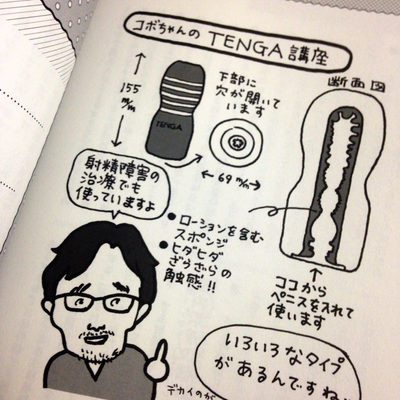 コボちゃんの TENGA 講座
断面図
155
m/m
TENGA
下部に
穴が開いて
います
69 m/m
射精障害の
治療でも
使っていますよ
●ローションを含む
スポンジ
●ヒダヒダ
ざらざらの
触感!!
ココから
ペニスを入れて
使います
いろいろなタイプ
があるんですね
デカイのが